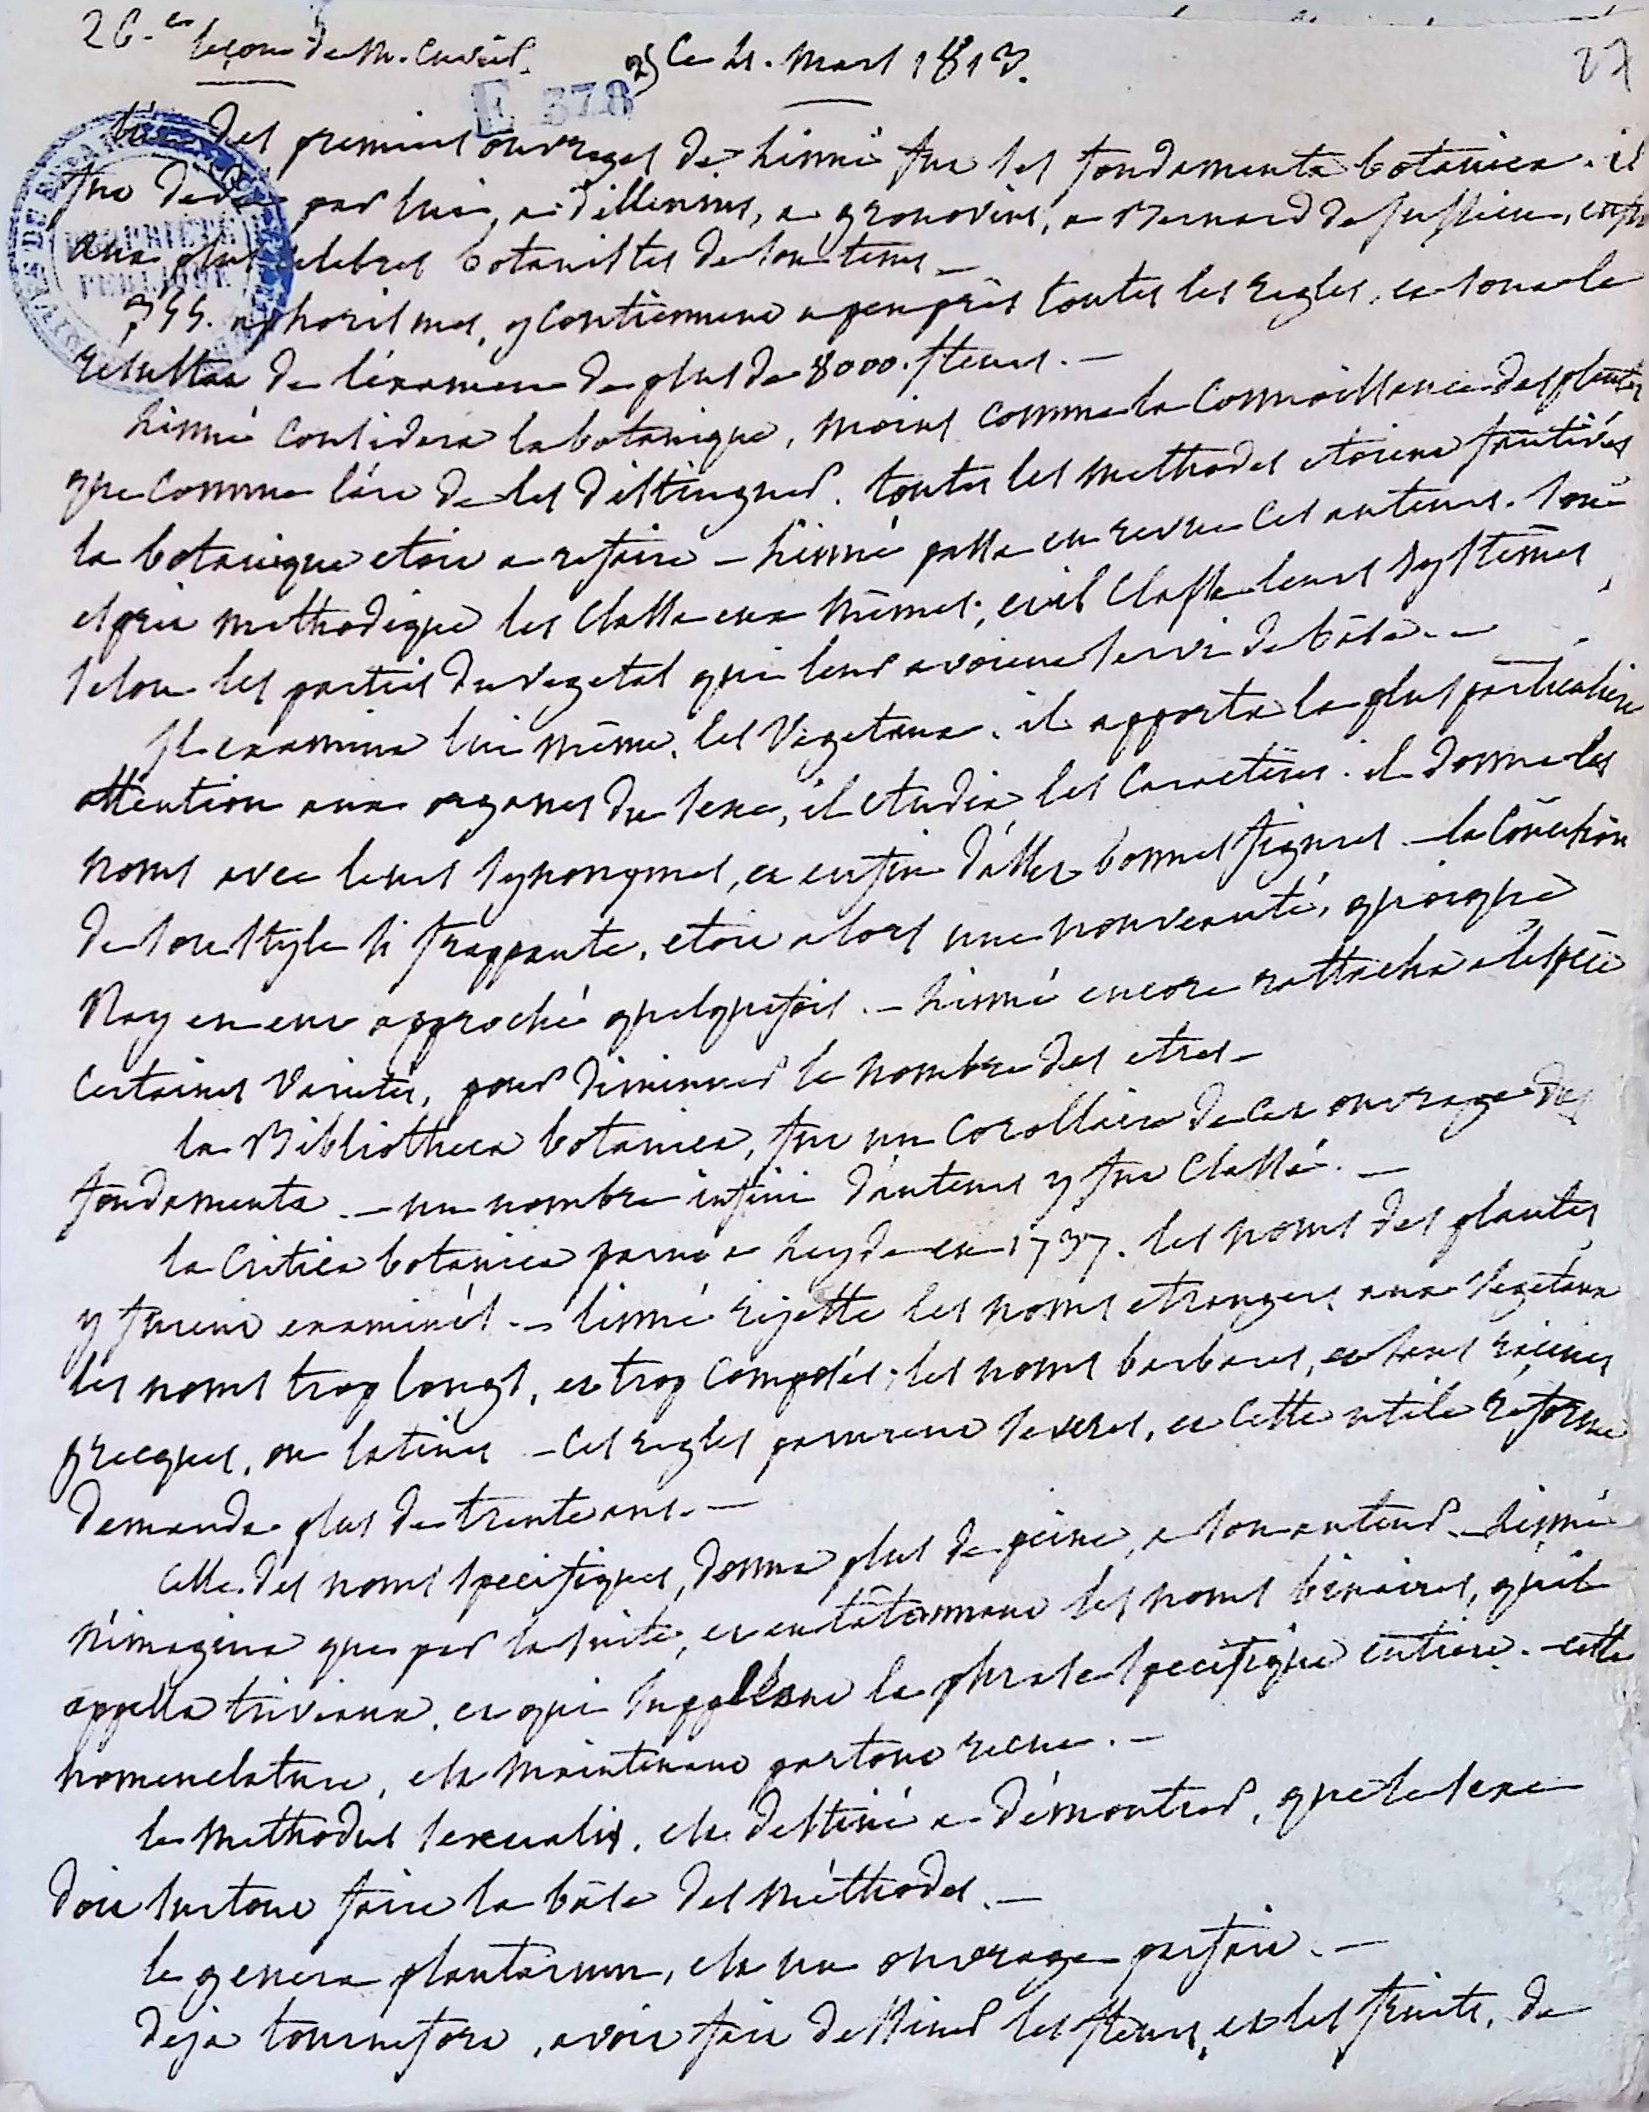 26.e leçon de M. Cuvier. 25 Ce 21. Mars 1813.
27
E 378
l'un des premiers ouvrages de Linné fut les fondamenta botanica. il
fut dédié par lui, a dillenius, a gronovius, a Bernard de Jussieu, enfin
aux plus celebres botanistes de son tems –
aphorismes, y contiennent a peu près toutes les regles, et sont le
resultat de l'examen de plus de 8000. fleurs. –
Linné considera la botanique, moins comme la connoissance des plantes
que comme l'art de les distinguer. toutes les methodes etoient fautives
la botanique etoit a refaire – Linné passa en revue ces auteurs. son
esprit methodique les classa eux mêmes, et il classa leurs systêmes,
selon les parties du vegetal qui leur avoient servi de bâse. –
Il examina lui même, les vegetaux. il apporta la plus particuliere
attention aux organes du sexe, il etudia les caractères. il donna les
noms avec leurs synonymes, et enfin d'assez bonnes figures. – la concision
de son style si frappante, etoit alors une nouveauté, quoique
Ray en eut approché quelquefois. – Linné encore rattacha a l'espèce
certaines varietés, pour diminuer le nombre des etres –
la Bibliotheca botanica, fut un corollaire de cet ouvrage des
fondamenta. – un nombre infini d'auteurs y fut classé. –
la Critica botanica parut a Leyde en 1737. les noms des plantes
y furent examinés. – Linné rejette les noms etrangers aux vegetaux
les noms trop longs, et trop composés, les noms barbares, et sans racines
grecques, ou latines – ces regles parurent severes, et cette utile reforme
demanda plus de trente ans. –
Celle des noms specifiques, donna plus de peine, a son auteur. – Linné
n'imagina que par la suite, et en tâtonnant les noms binaires, qu'il
appella triviaux, et qui suppléent la phrase specifique entiere. – cette
nomenclature, est maintenant partout recue. –
le methodus sexualis, est destiné a démontrer, que le sexe
doit surtout faire la bâse des méthodes. –
le genera plantarum, est un ouvrage parfait. –
deja tournefort, avoit fait dessiner les fleurs, et les fruits, de